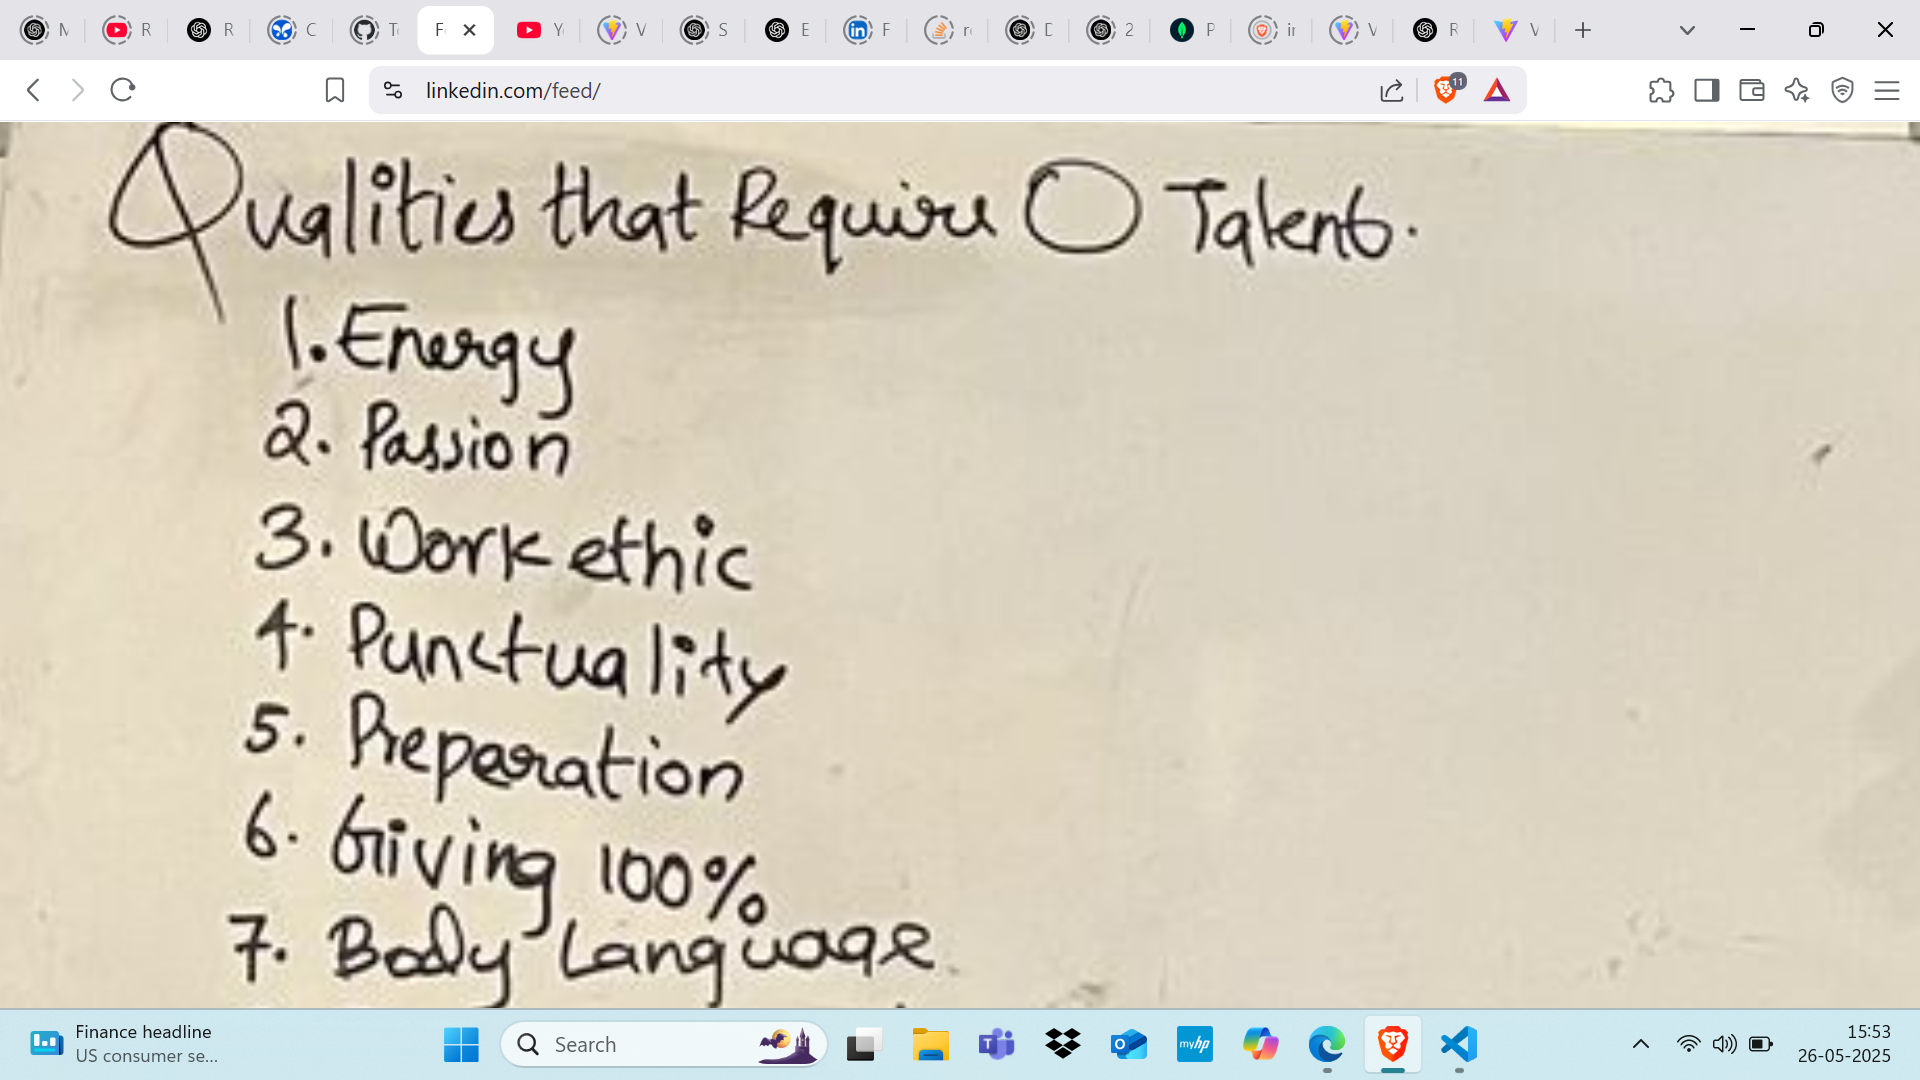 M
R
R
C
T
F
Y
V
S
E
F
r
D
2
P
ir
V
R
V
linkedin.com/feed/
11
Qualities that Require 0 Talent.
1. Energy
2. Passion
3. Work ethic
4. Punctuality
5. Preparation
6. Giving 100%
7. Body Language
Finance headline
US consumer se...
Search
myhp
15:53
26-05-2025